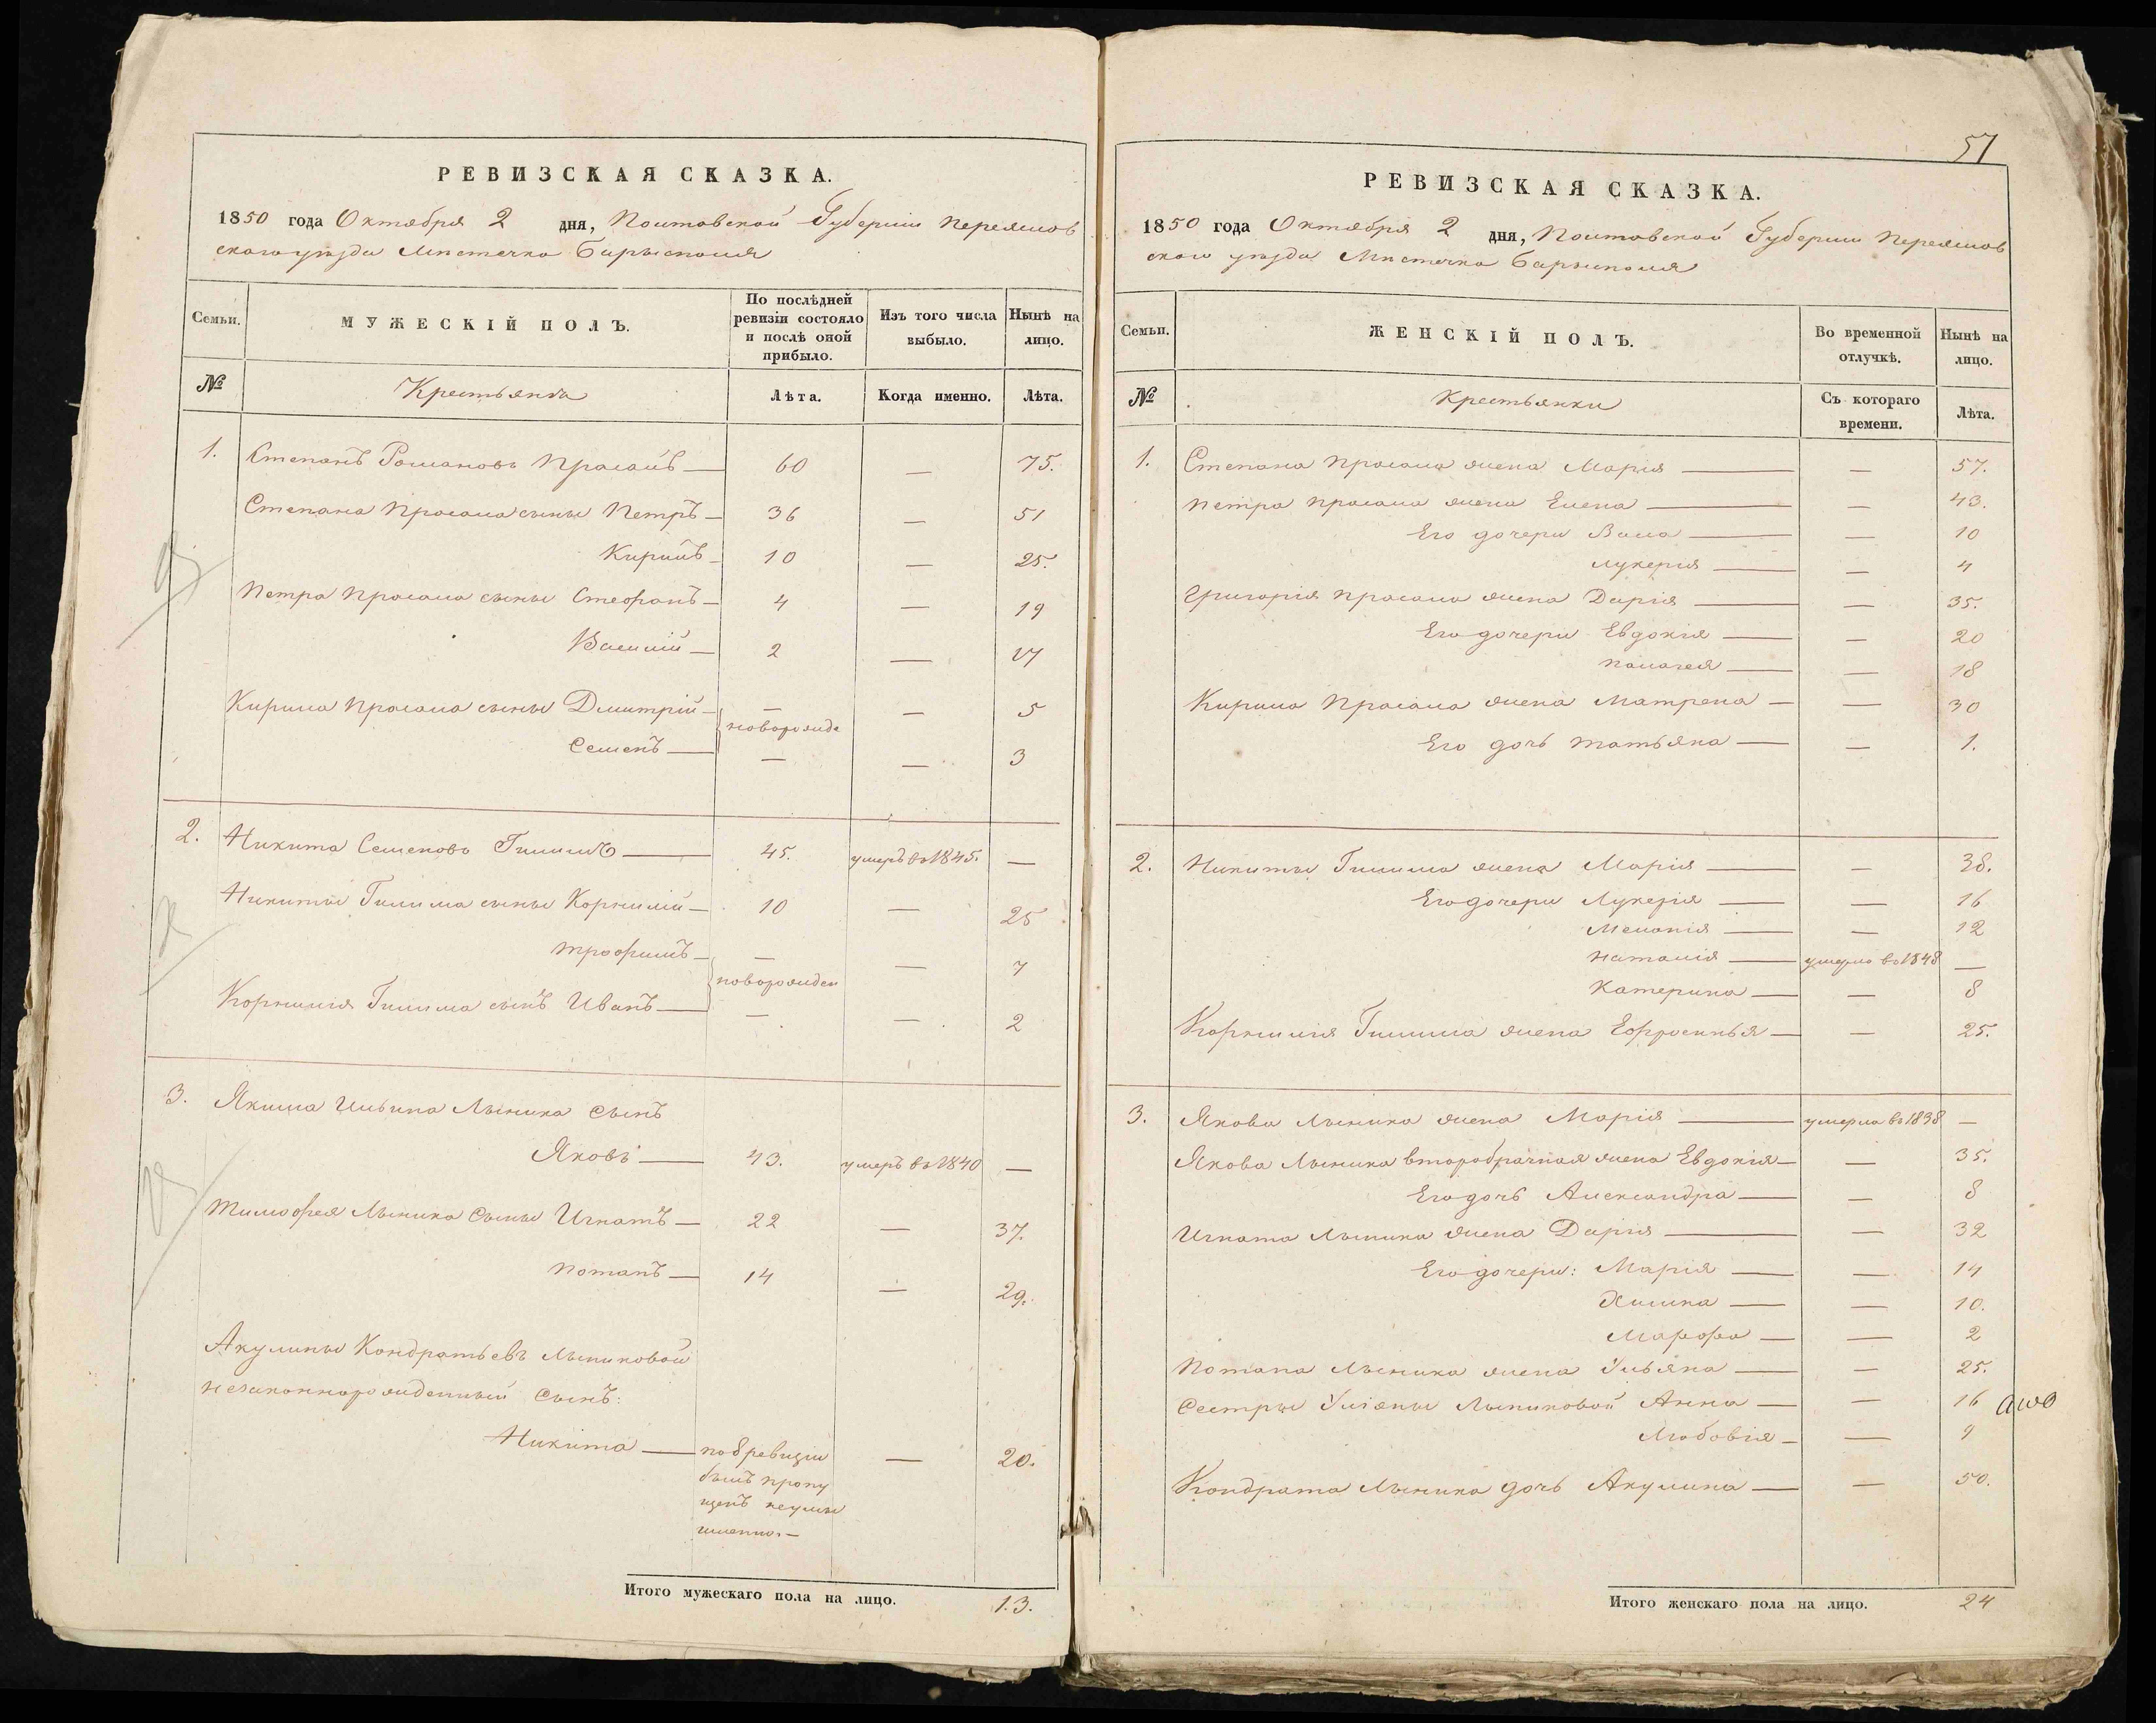 РЕВИЗСКАЯ СКАЗКА.
1850 года Октября 2 дня, Полтавской Губернии Переяслов
скаго уѣзда Мѣстечка Барысполя
Семьи.
МУЖЕСКІЙ ПОЛЪ.
По послѣдней ревизіи состояло и послѣ оной прибыло.
Изъ того числа выбыло.
Нынѣ на лицо.
№
Крестьянъ
Лѣта.
Когда именно.
Лѣта.
1. Степанъ Романовъ Прасалъ — 60 — 75.
Степана Прасала сыны Петръ — 36 — 51
Кирилъ — 10 — 25.
Петра Прасала сыны Стефанъ — 4 — 19
Василій — 2 — 17
Кирила Прасала сыны Дмитрій — — — 5
новорожде
Семенъ — — — 3
2. Никита Семеновъ Гилимъ — 45. умеръ въ 1845. —
Никиты Гилима сыны Корнилій — 10 — 25
Трофимъ — — — 7
новорожден
Корнилія Гилима сынъ Иванъ — — — 2
3. Якима Ильина Лыника сынъ
Яковъ — 43. умеръ въ 1840 —
Тимофея Лыника сыны Игнатъ — 22 — 37.
Потапъ — 14 — 29.
Акулины Кондратьевъ Лыниковой
незаконнорожденный сынъ:
Никита — по 8 ревизіи — 20.
былъ пропу
щенъ неумы
шленно. —
Итого мужескаго пола на лицо. 13.
57
РЕВИЗСКАЯ СКАЗКА.
1850 года Октября 2 дня, Полтавской Губерніи Переяслов
скаго уѣзда Мѣстечка Барысполя
Семьи.
ЖЕНСКІЙ ПОЛЪ.
Во временной отлучкѣ.
Нынѣ на лицо.
№
Крестьянки
Съ котораго времени.
Лѣта.
1. Степана Прасала жена Марія — — 57.
Петра Прасала жена Елена — — 43.
Его дочери — — 10
Лукерія — — 4
Григорія Прасала жена Дарія — — 35.
Его дочери Евдокія — — 20
Палагея — — 18
Кирила Прасала жена Матрена — — 30
Его дочь Татьяна — — 1.
2. Никиты Гилима жена Марія — — 38.
Его дочери Лукерія — — 16
Меланія — — 12
Наталія — умерла въ 1848 —
Катерина — — 8
Корнилія Гилима жена Ефросинья — — 25.
3. Якова Лыника жена Марія — умерла въ 1838 —
Якова Лыника второбрачная жена Евдокія — — 35.
Его дочь Александра — — 8
Игната Лыника жена Дарія — — 32
Его дочери: Марія — — 14
— — 10.
Марфа — — 2
Потапа Лыника жена Ульяна — — 25.
Сестры Уліяны Лыниковой Анна — — 16
Любовія — — 9
Кондрата Лыника дочь Акулина — — 50.
Итого женскаго пола на лицо. 24